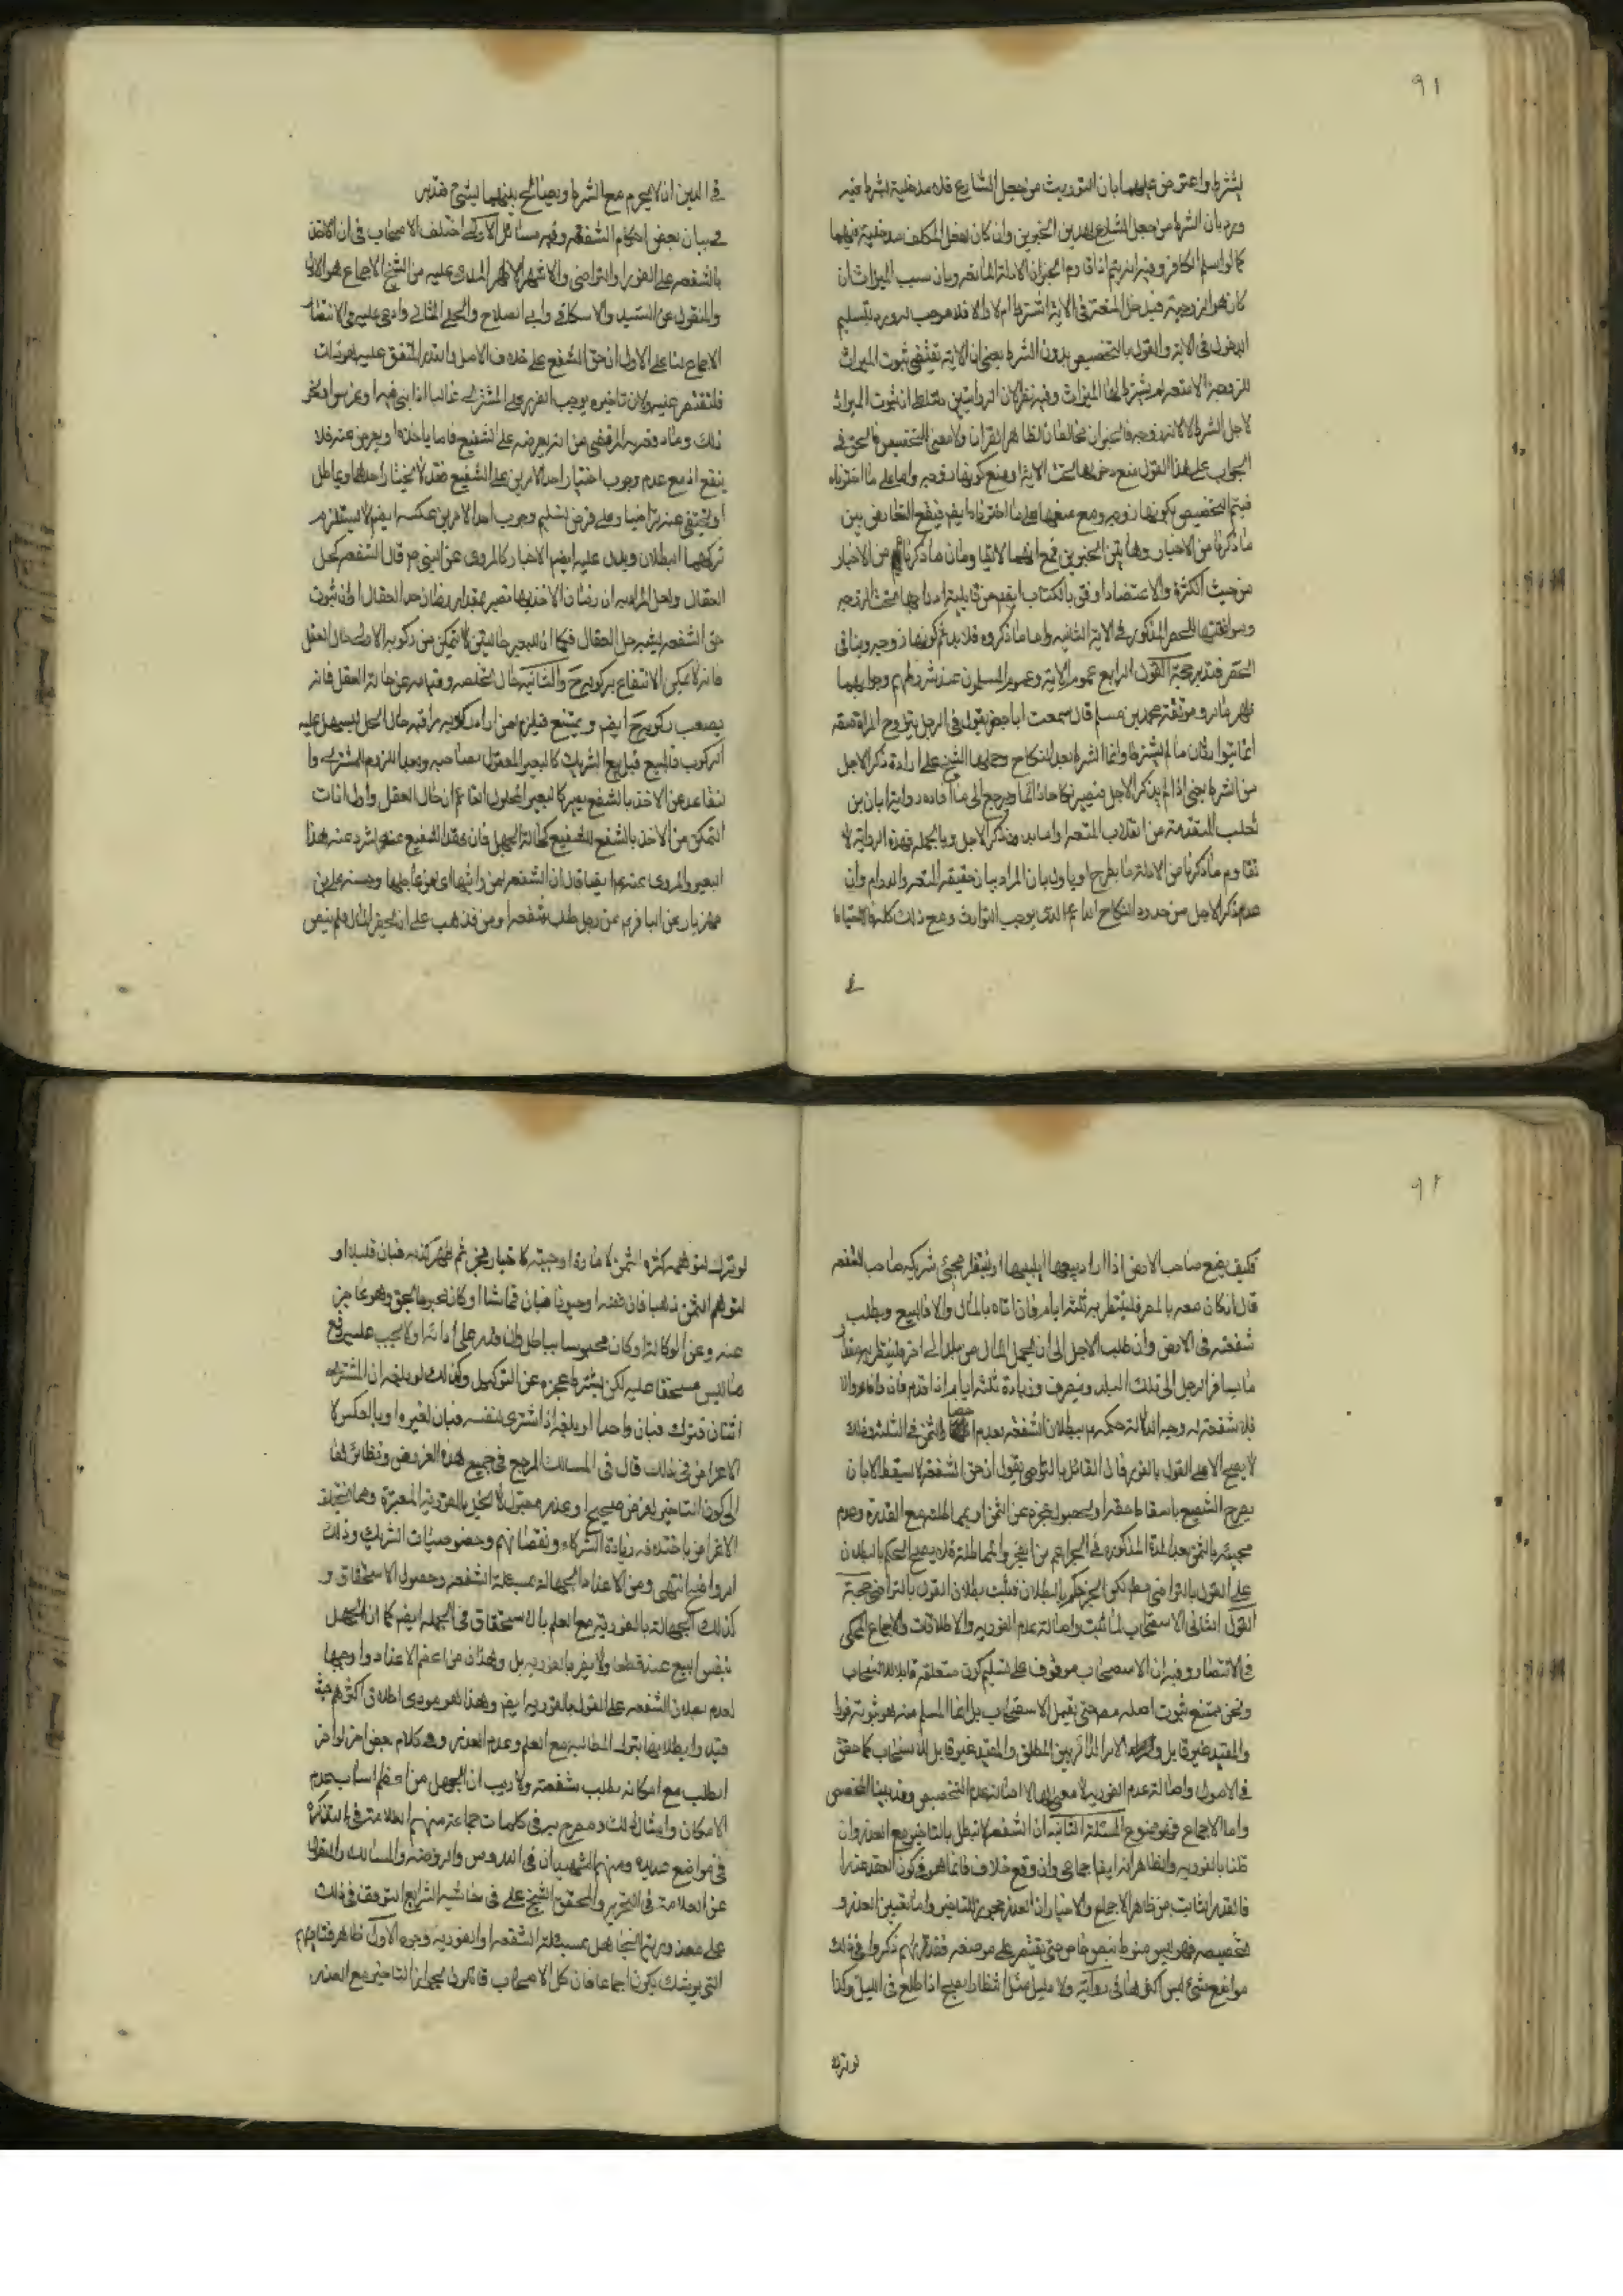 ٩١
بشرط واعترض عليهما بان التوريث من جعل الشارع فلا مدخلية لشرط فيه
ورد بان الشرط من جعل الشارع لهذين الخبرين وان كان لفعل المكلف مدخلية فيهما
كما لو اسلم الكافر وفيه انه يتم اذا قاوم الخبران الادلة المانعة وبان سبب الميراث ان
كان هو الزوجية فيدخل المتعة في الاية اشترط ام لا والا فلا موجب له ورد بتسليم
الدخول في الاية والقول بالتخصيص بدون الشرط يعني ان الاية تقتضي ثبوت الميراث
للزوجة الا متعة لم يشترط لها الميراث وفيه نظر لان الروايتين دلتا على ان ثبوت الميراث
لاجل الشرط لا لانه زوجة فالخبران مخالفان لظاهر القران ولا معنى للتخصيص فالحق في
الجواب على هذا القول منع دخولها تحت الاية ومنع كونها زوجة واما على ما اخترناه
فيتم التخصيص بكونها زوجة ومع منعها على ما اخترناه ايضا فيقع التعارض بين
ما ذكرنا من الاخبار وهاتين الخبرين فمع انهما لا تقاومان ما ذكرنا من الاخبار
من حيث الكثرة والاعتضاد اوفق بالكتاب ايضا من قابلية ادراجها تحت الزوجة
المذكور في الاية الثانية واما ما ذكروه فلا يلائم كونها زوجة وينافي
الحصر فتدبر حجة القول الرابع عموم الاية وعموم المسلمون عند شروطهم وجوابهما
ظهر مما مر وموثقة محمد بن مسلم قال سمعت ابا جعفر يقول في الرجل يتزوج المراة متعة
انهما يتوارثان ما لم يشترطا وانما الشرط بعد النكاح وحملها الشيخ على ارادة ذكر الاجل
من الشرط يعني اذا لم يذكر الاجل فيصير نكاحا دائما ويرجع الى ما افاده رواية ابان بن
تغلب المتقدمة من انقلاب المتعة دواما بدون ذكر الاجل وبالجملة فهذه الرواية لا
تقاوم ما ذكرنا من الادلة فاما يطرح او ياول بان المراد بيان حقيقة المتعة والدوام وان
عدم ذكر الاجل من حدود النكاح الدائم الذي يوجب التوارث ومع ذلك كله فالاحتياط
في الدين ان لا يحرم مع الشرط ويصالح بينهما بشيء فتدبر
في بيان بعض احكام الشفعة وفيه مسائل الاولى اختلف الاصحاب في ان الاخذ
بالشفعة على الفور او التراخي والاشهر الاظهر المدعى عليه من الشيخ الاجماع هو الاول
والمنقول عن السيد والاسكافي وابي الصلاح والحلي الثاني وادعى عليه في الانتصار
الاجماع لنا على الاول ان حق الشفيع على خلاف الاصل والقدر المتفق عليه هو ذات
فلنقتصر عليه ولان تاخيره يوجب الضرر على المشتري غالبا اذا بنى فيها او غرس او نحو
ذلك وما قرره المرتضى من انه يعرضه على الشفيع فاما ياخذها او يعرض عنه فلا
ينفع اذ مع عدم وجوب اختيار احد الامرين على الشفيع فقد لا يختار احدهما ويماطل
او يختفي عنه تراخيا وعلى فرض تسليم وجوب احد الامرين عليه ايضا لا يستلزم
تركهما البطلان ويدل عليه ايضا الاخبار كالمروي عن النبي ص قال الشفعة كحل
العقال ولعل المراد به ان زمان الاخذ بها قصير بمقدار زمان حل العقال او ان ثبوت
حق الشفعة يشبه حل العقال فكما ان للبعير حالتين لا تمكن من ركوبه الاولى حال العقل
فانه لا يمكن الانتفاع بركوبه ح والثانية حال تخلصه وقيامه عن حالة العقل فانه
يصعب ركوبه ح ايضا ويمتنع فيلزم لمن اراد ركوبه مراقبة حال الحل ليسهل عليه
الركوب فالبيع قبل بيع الشريك كالبعير المعقول بصاحبه وبعد اللزوم للمشتري وا
لتقاعد عن الاخذ بالشفع يصير كالبعير المحلول القائم عن حال العقل واول اوقات
التمكن من الاخذ بالشفع للشفيع كحالة الحل فان عقد الشفيع عنه شرد عنه هذا
البعير والمروي عنه ايضا قال ان الشفعة لمن واثبها اي لمن عاجلها وحسنة علي بن
مهزيار عن ابي جعفر عن رجل طلب شفعة ارض فذهب على ان يحضر المال فلم ينض
٩٢
فكيف يصنع صاحب الارض اذا اراد بيعها ايبيعها او ينتظر مجيء شريكه صاحب الشفعة
قال ان كان معه بالمصر فلينتظر به ثلثة ايام فان اتاه بالمال والا فليبيع وبطلت
شفعته في الارض وان طلب الاجل الى ان يحمل المال من بلد الى اخر فلينتظر به مقدار
ما يسافر الرجل الى تلك البلد وينصرف وزيادة ثلثة ايام اذا قدم فان وافاه والا
فلا شفعة له وجه الدلالة حكمه ببطلان الشفعة بعدم احضار الثمن في الثلثة وذلك
لا يصح الا على القول بالفور فان القائل بالتراخي يقول ان حق الشفعة لا يسقط الا بان
يصرح الشفيع باسقاط حقه او يحصل عجزه عن الثمن او يماطله مع القدرة وعدم
مجيئه بالثمن بعد المدة المذكورة في الخبر اعم من العجز والمماطلة فلا يصح الحكم بالبطلان
على القول بالتراخي مطلقا لكن الخبر حكم بالبطلان فيثبت بطلان القول بالتراخي حجة
القول الثاني الاستصحاب لما ثبت واصالة عدم الفورية والاطلاقات والاجماع المحكي
في الانتصار وفيه ان الاستصحاب موقوف على تسليم كون متعلقه قابلا للاستصحاب
ونحن نمنع ثبوت اصله معه حتى يقبل الاستصحاب بل انما المسلم منه هو ثبوته فورا
والمقيد غير قابل والامر الدائر بين المطلق والمقيد غير قابل للاستصحاب كما حقق
في الاصول واصالة عدم الفورية لا معنى لها الا اصالة عدم التخصيص وقد بينا المخصص
واما الاجماع فهو موضوع المسئلة الثانية ان الشفعة لا تبطل بالتاخير مع العذر وان
قلنا بالفورية والظاهر انه ايضا اجماعي وان وقع خلاف فانما هو في كون العذر عذرا
فالقدر الثابت من ظاهر الاجماع والاخبار ان العذر مجوز للتاخير واما تعيين العذر و
تخصيصه فهو ليس منوطا بنص خاص حتى يقتصر على موضعه فقد تراهم ذكروا في ذلك
مواضع شتى ليس اكثرها في رواية ولا دليل مثل انتظار الصبح اذا اطلع في الليل وكذا
لو ترك
لو ترك لتوهم كثرة الثمن لامارة اوجبته كاخبار مخبر ثم ظهر كذبه فبان قليلا او
لتوهم الثمن ذهبا فان فضة او حيوانا فبان قماشا او كان محبوسا بحق وهو عاجز
عنه وعن الوكالة او كان محبوسا بباطل وان قدر على ادائه او لا يجب عليه دفع
ما ليس مستحقا عليه لكن يشترط عجزه عن التوكيل وكذلك لو بلغه ان المشتري
اثنان فترك فبان واحدا او بلغه اذا اشترى لنفسه فبان لغيره او بالعكس لا
الاغراض في ذلك قال في المسالك المرجع في جميع هذه الفروض ونظائرها
الى كون التاخير لغرض صحيح او عذر معتبر لا يخل بالفورية المعتبرة وهما تختلف
الاغراض باختلاف زيادة الشركاء ونقصانهم وخصوصيات الشريك وذلك
امر واضح انتهى ومن الاعذار الجهالة بمسئلة الشفعة وحصول الاستحقاق و
كذلك الجهالة بالفورية مع العلم بالاستحقاق في الجملة ايضا كما ان الجهل
بنفس البيع عذر قطعا ولا يضر بالفورية بل وهذان من اعظم الاعذار واوجهها
لعدم بطلان الشفعة على القول بالفورية ايضا وهذا هو مؤدى اطلاق اكثرهم حيث
قيدوا بطلانها بترك المطالبة مع العلم وعدم العذر وفي كلام بعض اخر لو اخر
الطلب مع امكانه بطلت شفعته ولا ريب ان الجهل من اعظم اسباب عدم
الامكان وامثال ذلك ومصرح به في كلمات جماعة منهم العلامة في التذكرة
في مواضع عديدة ومنهم الشهيدان في الدروس والروضة والمسالك والمنقول
عن العلامة في التحرير والمحقق الشيخ علي في حاشية الشرايع التوقف في ذلك
على معذورية الجاهل بمسئلة الشفعة او الفورية وجوه الاول ظاهر فتاويهم
التي يوشك يكون اجماعا فان كل الاصحاب قائلون بجواز التاخير مع العذر